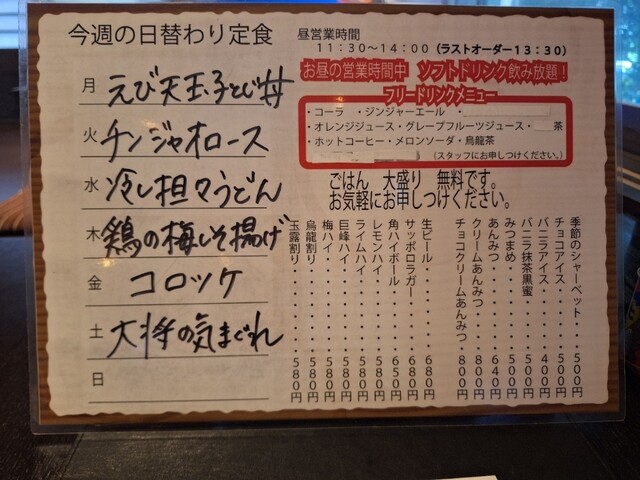 今週の日替わり定食
月 えび天玉子とじ丼
火 チンジャオロース
水 冷し担々うどん
木 鶏の梅しそ揚げ
金 コロッケ
土 大将の気まぐれ
日
昼営業時間
11:30～14:00 (ラストオーダー13:30)
お昼の営業時間中 ソフトドリンク飲み放題!
フリードリンクメニュー
・コーラ ・ジンジャーエール ・
・オレンジジュース・グレープフルーツジュース・ 茶
・ホットコーヒー・メロンソーダ・烏龍茶
(スタッフにお申しつけください。)
ごはん 大盛り 無料です。
お気軽にお申しつけください。
季節のシャーベット・・500円
チョコアイス・・・・・500円
バニラアイス・・・・・400円
バニラ抹茶黒蜜・・・・500円
みつまめ・・・・・・・500円
あんみつ・・・・・・・640円
クリームあんみつ・・・800円
チョコクリームあんみつ・800円
生ビール・・・・・・・680円
サッポロラガー・・・・680円
角ハイボール・・・・・650円
レモンハイ・・・・・・580円
ライムハイ・・・・・・580円
巨峰ハイ・・・・・・・580円
梅ハイ・・・・・・・・580円
烏龍割り・・・・・・・580円
玉露割り・・・・・・・580円